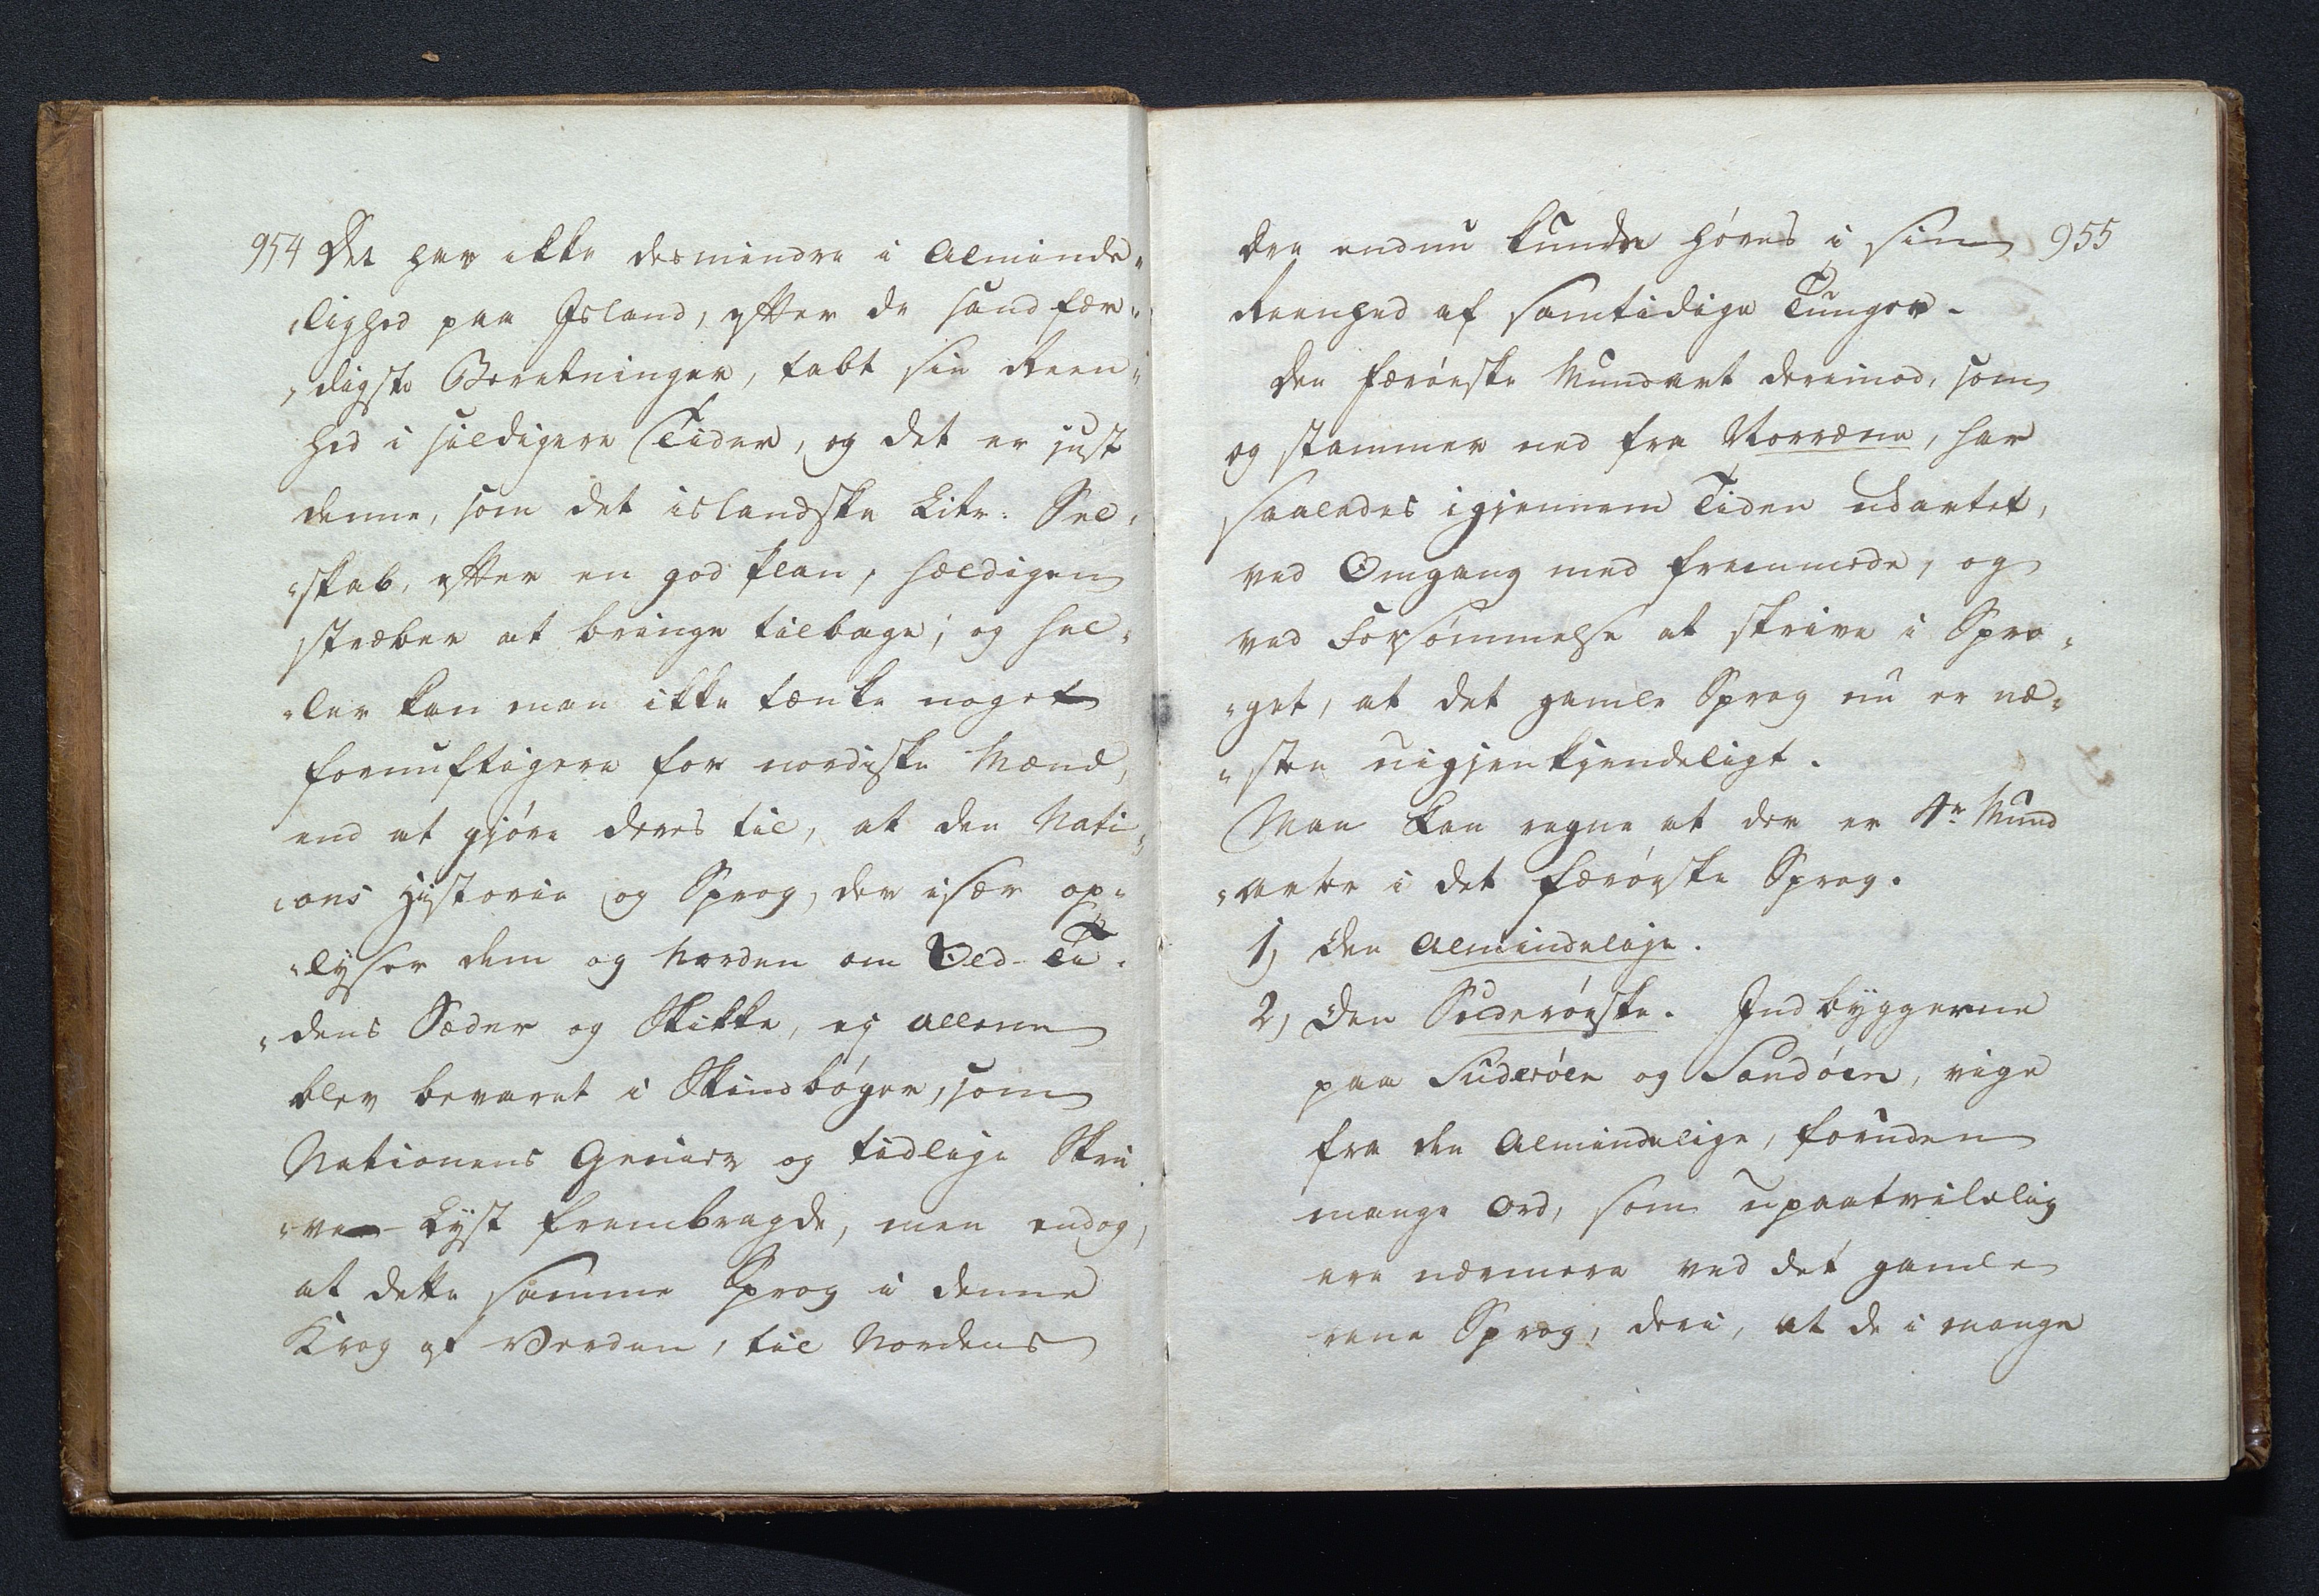 954 Det har ikke desmindre i Alminde-
„lighed paa Island, efter de sandfær-
„digste Beretninger, tabt sin Reen-
hed i sildigere Tider, og det er just
denne, som det islandske Litr: Sel-
„skab, efter en god Plan, heldigen
stræber at bringe tilbage; og hel-
„ler kan man ikke tænke noget
fornuftigere for nordiske Mænd,
end at gjøre deres til, at den Nati-
„ons Historie og Sprog, der især op-
„lyser dem og Norden om Old-Ti-
„dens Sæder og Skikke, ej allene
blev bevaret i Skindbøger, som
Nationens Genier og tidlige Skri
„ve-Lyst frembragde, men endog,
at dette samme Sprog i denne
Krog af Verden, til Nordens
der endnu kunde høres i sin 955
Reenhed af samtidige Tunger.
Den færöeske Mundart derimod, som
og stammer ned fra Norræna, har
saaledes igjennem Tiden udartet,
ved Omgang med fremmede, og
ved Forsömmelse at skrive i Spro-
„get, at det gamle Sprog nu er næ-
„sten uigjenkjendeligt.
Man kan regne at der er 4re Mund
„arter i det færöeske Sprog.
1, Den Almindelige.
2, Den Suderöeske. Indbyggerne
paa Suderöen og Sandöen, vige
fra den Almindelige, foruden
mange Ord, som upaatvilelig
ere nærmere ved det gamle
rene Sprog, deri, at de i mange